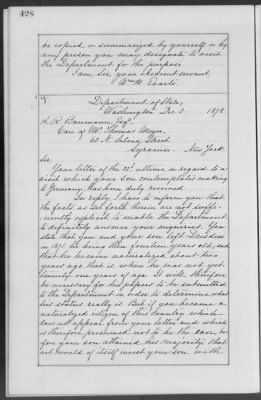 428
be copied or summarized by yourself or by
any person you may designate to visit
the Department for the purpose.
I am, Sir, your obedient servant,
Wm M. Evarts.
Department of State,
Washington, Dec. 3 1878
A. R. Baumann Esqr,
Care of Mr. Thomas Meyer,
60 N. Salina Street
Syracuse. New York.
Sir:
Your letter of the ultimo, in regard to a
visit which your son contemplates making
to Germany, has been duly received.
In reply, I have to inform you that
the facts as set forth therein are not suffi-
ciently explicit to enable the Department
to definitely answer your enquiries. You
state that you and your son left Dresden
in 1871. he being then fourteen years old, and
that he became naturalized about two
years ago that is when he was not yet
twenty one years of age. It will, therefore
be necessary for his papers to be submitted
to the Department in order to determine what
his status really is. But if you became a
naturalized citizen of this country which
does not appear from your letter and which
is therefore presumed not to be the case, be-
fore your son attained his majority that
act would of itself invest your son with